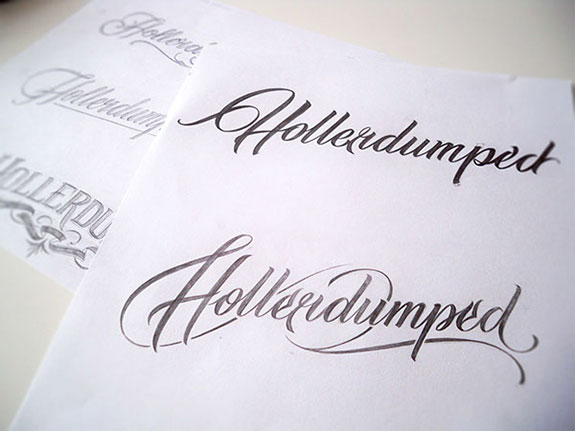 Hollow
Hollerdump
HOLLERDU
Hollerdumped
Hollerdumped